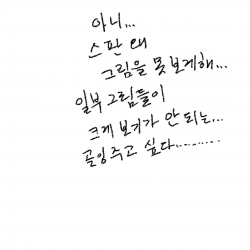 아니...
스판 왜
그림을 못보게해...
일부 그림들이
크게 보기가 안 되는...
골잉주고 싶다.........